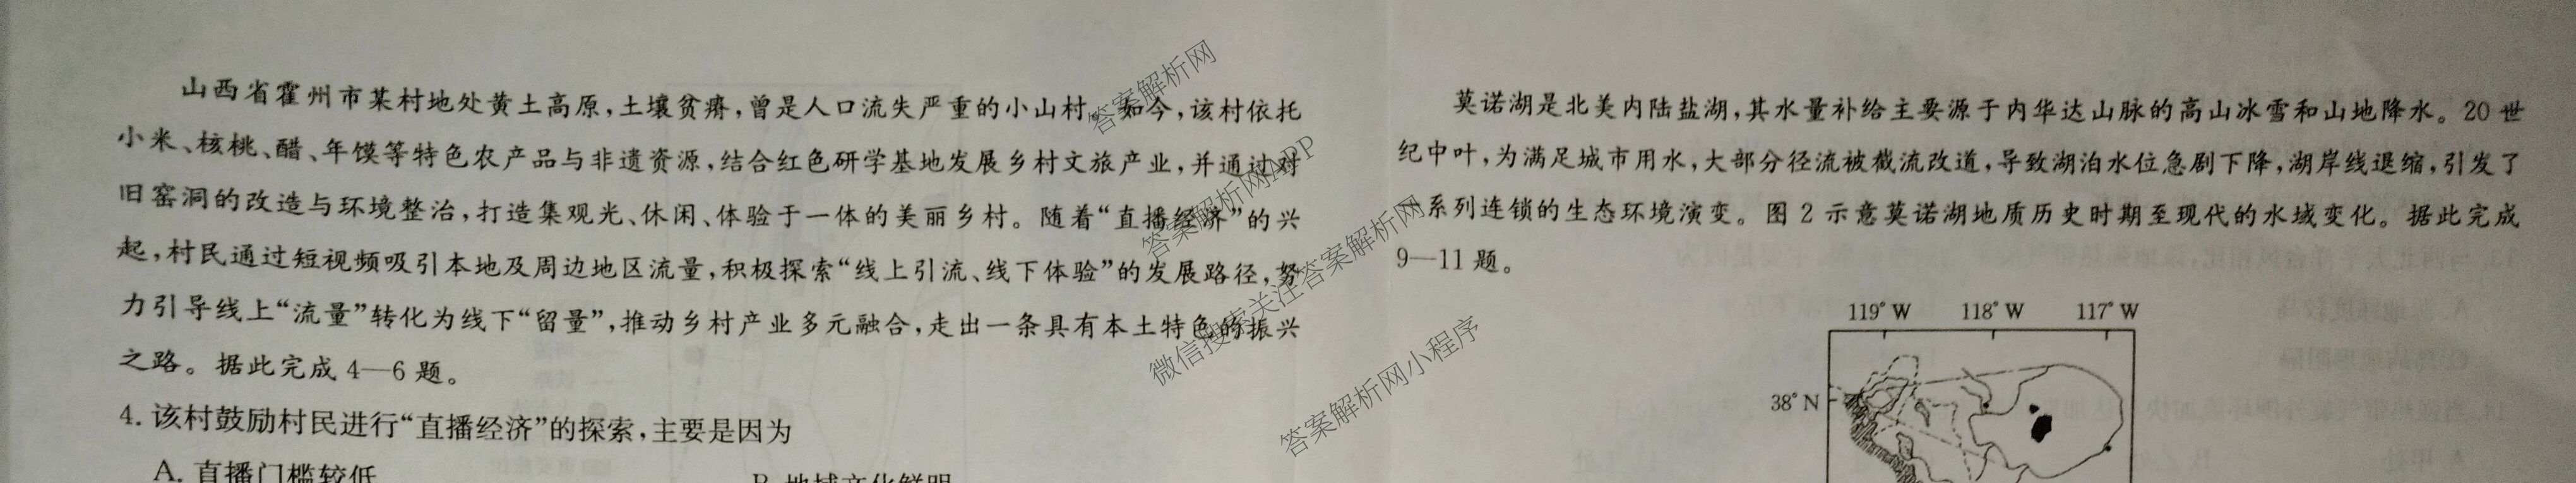 山西省霍州市某村地处黄土高原,土壤贫瘠,曾是人口流失严重的小山村。如今,该村依托
小米、核桃、醋、年馍等特色农产品与非遗资源,结合红色研学基地发展乡村文旅产业,并通过对
旧窑洞的改造与环境整治,打造集观光、休闲、体验于一体的美丽乡村。随着“直播经济”的兴
起,村民通过短视频吸引本地及周边地区流量,积极探索“线上引流、线下体验”的发展路径,努
力引导线上“流量”转化为线下“留量”,推动乡村产业多元融合,走出一条具有本土特色的振兴
之路。据此完成 4—6 题。
4. 该村鼓励村民进行“直播经济”的探索,主要是因为
A. 直播门槛较低
B. 地域文化鲜明
莫诺湖是北美内陆盐湖,其水量补给主要源于内华达山脉的高山冰雪和山地降水。20 世
纪中叶,为满足城市用水,大部分径流被截流改道,导致湖泊水位急剧下降,湖岸线退缩,引发了
一系列连锁的生态环境演变。图 2 示意莫诺湖地质历史时期至现代的水域变化。据此完成
9—11 题。
119° W 118° W 117° W
38° N
答案解析网
答案解析网APP
微信搜索关注答案解析网
答案解析网小程序